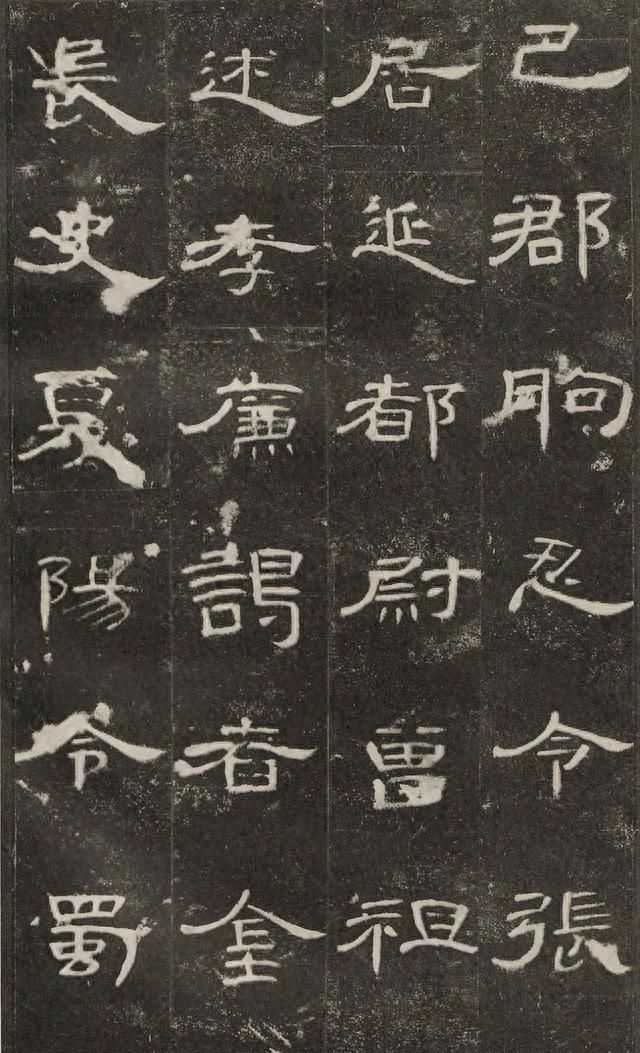 巴郡朐忍令張
居延都尉曾祖
述孝廉謁者金
長史夏陽令蜀